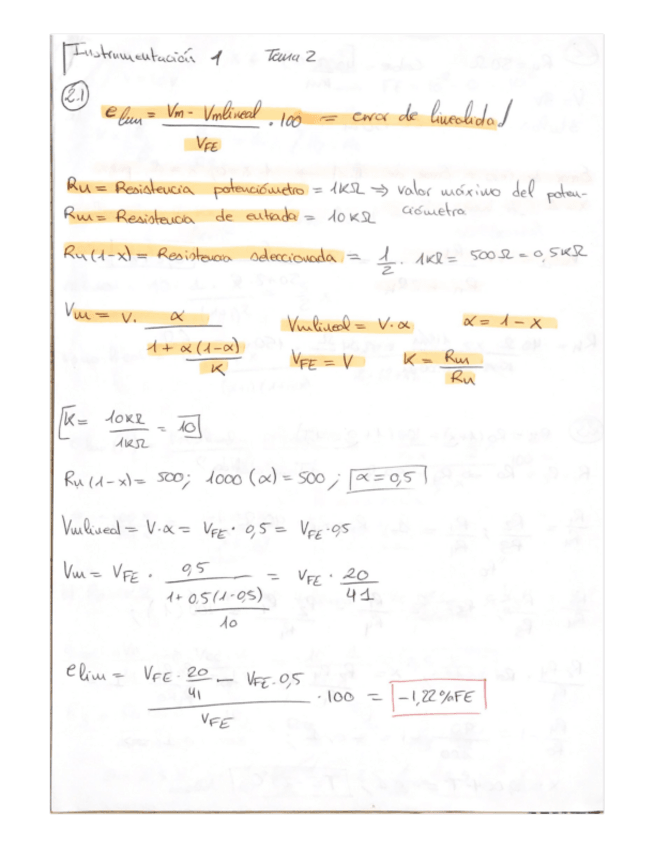 Instrumentación 1 Tema 2
2.1
e lin = Vm - Vmlineal / VFE · 100 = error de linealidad
Rn = Resistencia potenciómetro = 1KΩ ⇒ valor máximo del poten-
ciómetra
Rm = Resistencia de entrada = 10KΩ
Rn(1-x) = Resistencia seleccionada = 1/2 · 1KΩ = 500Ω = 0,5KΩ
Vm = V · α / (1 + α(1-α)/K) Vmlineal = V·α α = 1 - x
VFE = V K = Rm/Rn
K = 10KΩ/1KΩ = 10
Rn(1-x) = 500; 1000(α) = 500; α = 0,5
Vmlineal = V·α = VFE · 0,5 = VFE·0,5
Vm = VFE · 0,5 / (1 + 0,5(1-0,5)/10) = VFE · 20/41
e lin = (VFE · 20/41 - VFE·0,5) / VFE · 100 = -1,22%FE